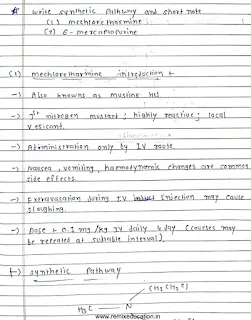 * write synthetic pathway and short note
(1) mechloretharmine
(2) 6-mercaptopurine
(1) mechlorethermine introduction +
-) Also knowns as mustine Hcl
-) 1st nitrogen mustart; highly reactive; local
vesicant.
-) Administration only by IV route.
-) Nausea, vomiting, haemodynamic changes are common
side effects.
-) Extravasation during IV injection may cause
sloughing.
-) Dose + 0.1 mg/kg IV daily 4 day (courses may
be repeated at suitable interval).
+) synthetic pathway
CH2CH2Cl
H3C — N
www.remixeducation.in